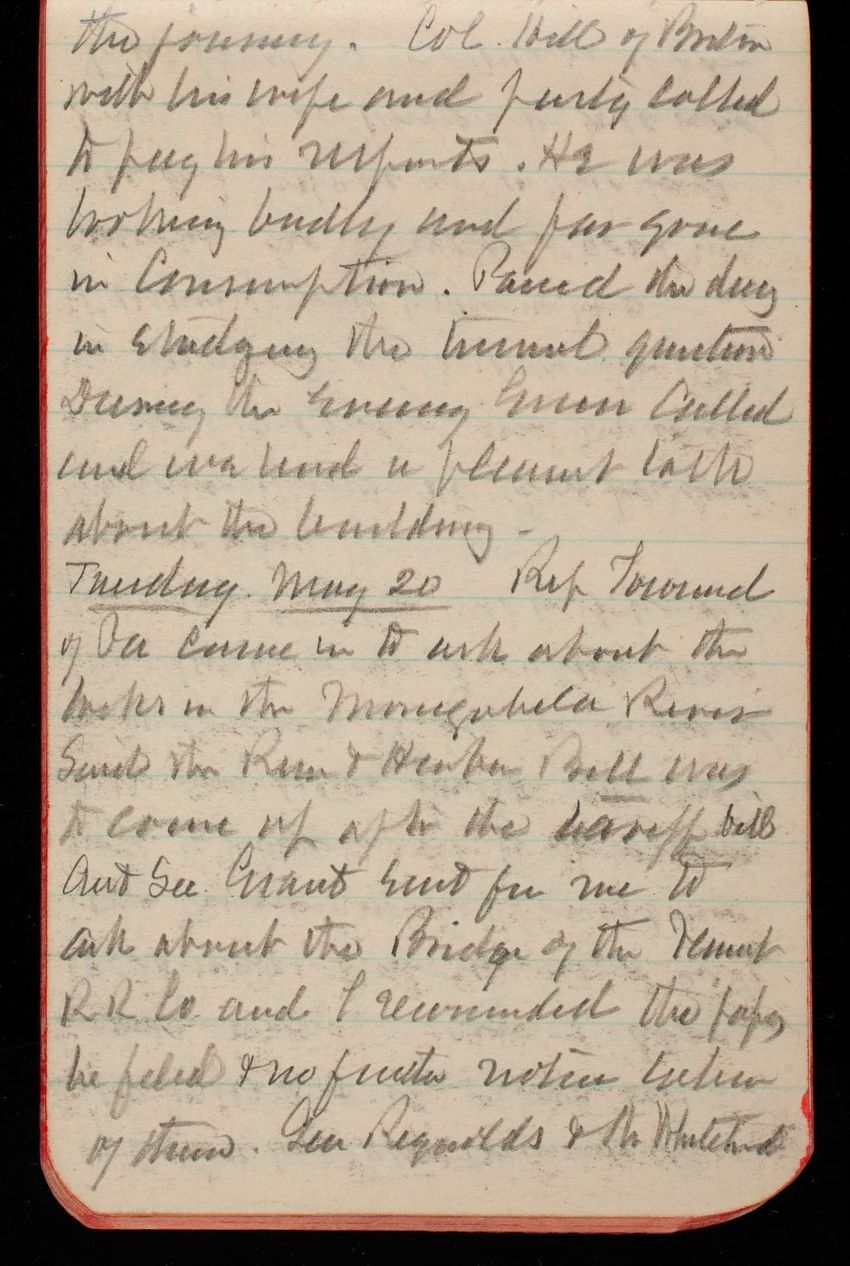 the journey. Col. Hill of Boston
with his wife and party called
to pay his respects. He was
looking badly and far gone
in Consumption. Passed the day
in studying the tunnel question
During the Evening Green Called
and we had a pleasant talk
about the building -
Tuesday. May 20 Rep Townsend
of Pa came in to ask about the
locks in the Monegahela River
Said the River & Harbor Bill was
to come up after the tariff bill
Aut Sec. Grant sent for me to
ask about the Bridge of the
RR Co. and I recommended the papers
be filed & no further notice taken
of them. Gen Reynolds & Mr